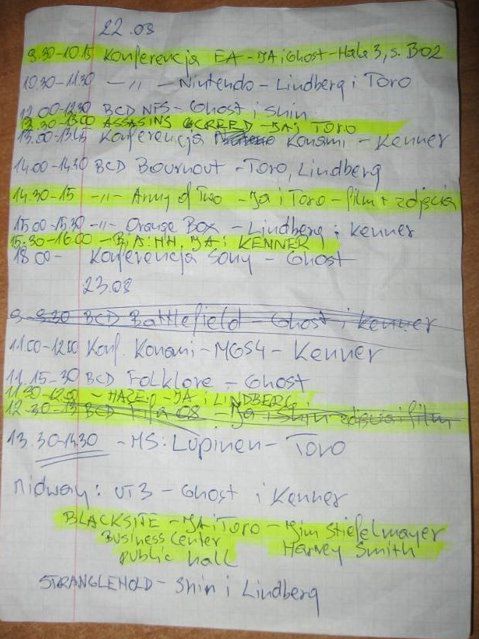 22.08
9.30-10.15 Konferencja EA - JA i Ghost - Hala 3, s. B02
10.30-11.30 -||- Nintendo - Lindberg i Toro
12.00-12.30 BCD NFS - Ghost i Shin
12.30-13.00 ASSASINS CCREED - JA i TORO
13.00-13.45 Konferencja Konami - Kenner
14.00-14.30 BCD Bournout - Toro, Lindberg
14.30-15 -||- Army of Two - Ja i Toro - film + zdjęcia
15.00-15.30 -||- Orange Box - Lindberg i Kenner
15.30-16.00 - BiA:HH, JA i KENNER
18.00- Konferencja Sony - Ghost
23.08
9-9.30 BCD Battlefield - Ghost i Kenner
11.00-12.00 Konf. Konami - MGS4 - Kenner
11.15-30 BCD Folklore - Ghost
11.30-12.00 - HAZE - JA i LINDBERG
12.30-13 BCD Fifa 08 - Ja i Shin zdjęcia i film
13.30-14.30 - MS: Lupinen - Toro
Midway: UT3 - Ghost i Kenner
BLACKSITE - JA i Toro - Jim Stiefelmayer
Business Center Harvey Smith
public hall
STRANGLEHOLD - Shin i Lindberg